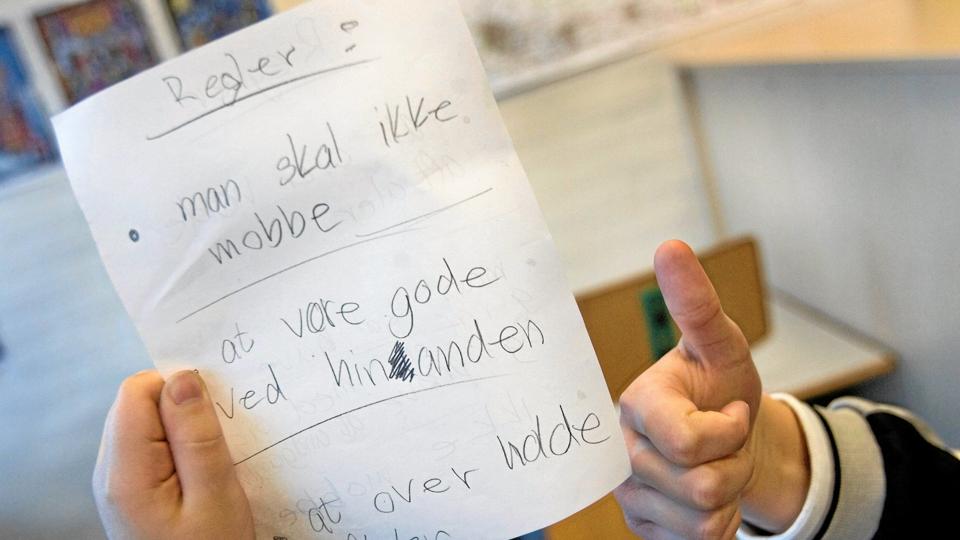 Regler :
• man skal ikke
mobbe
at være gode
ved hinanden
at over holde